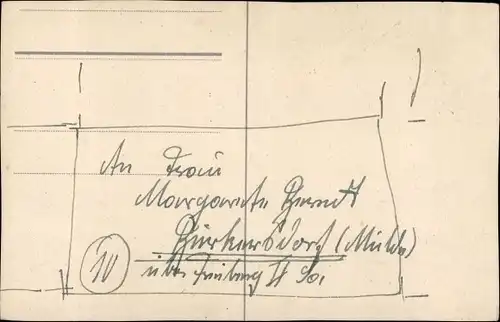 An Frau
Margarete Berndt
Burkersdorf (Mulde)
10
über Freiberg II Sa.